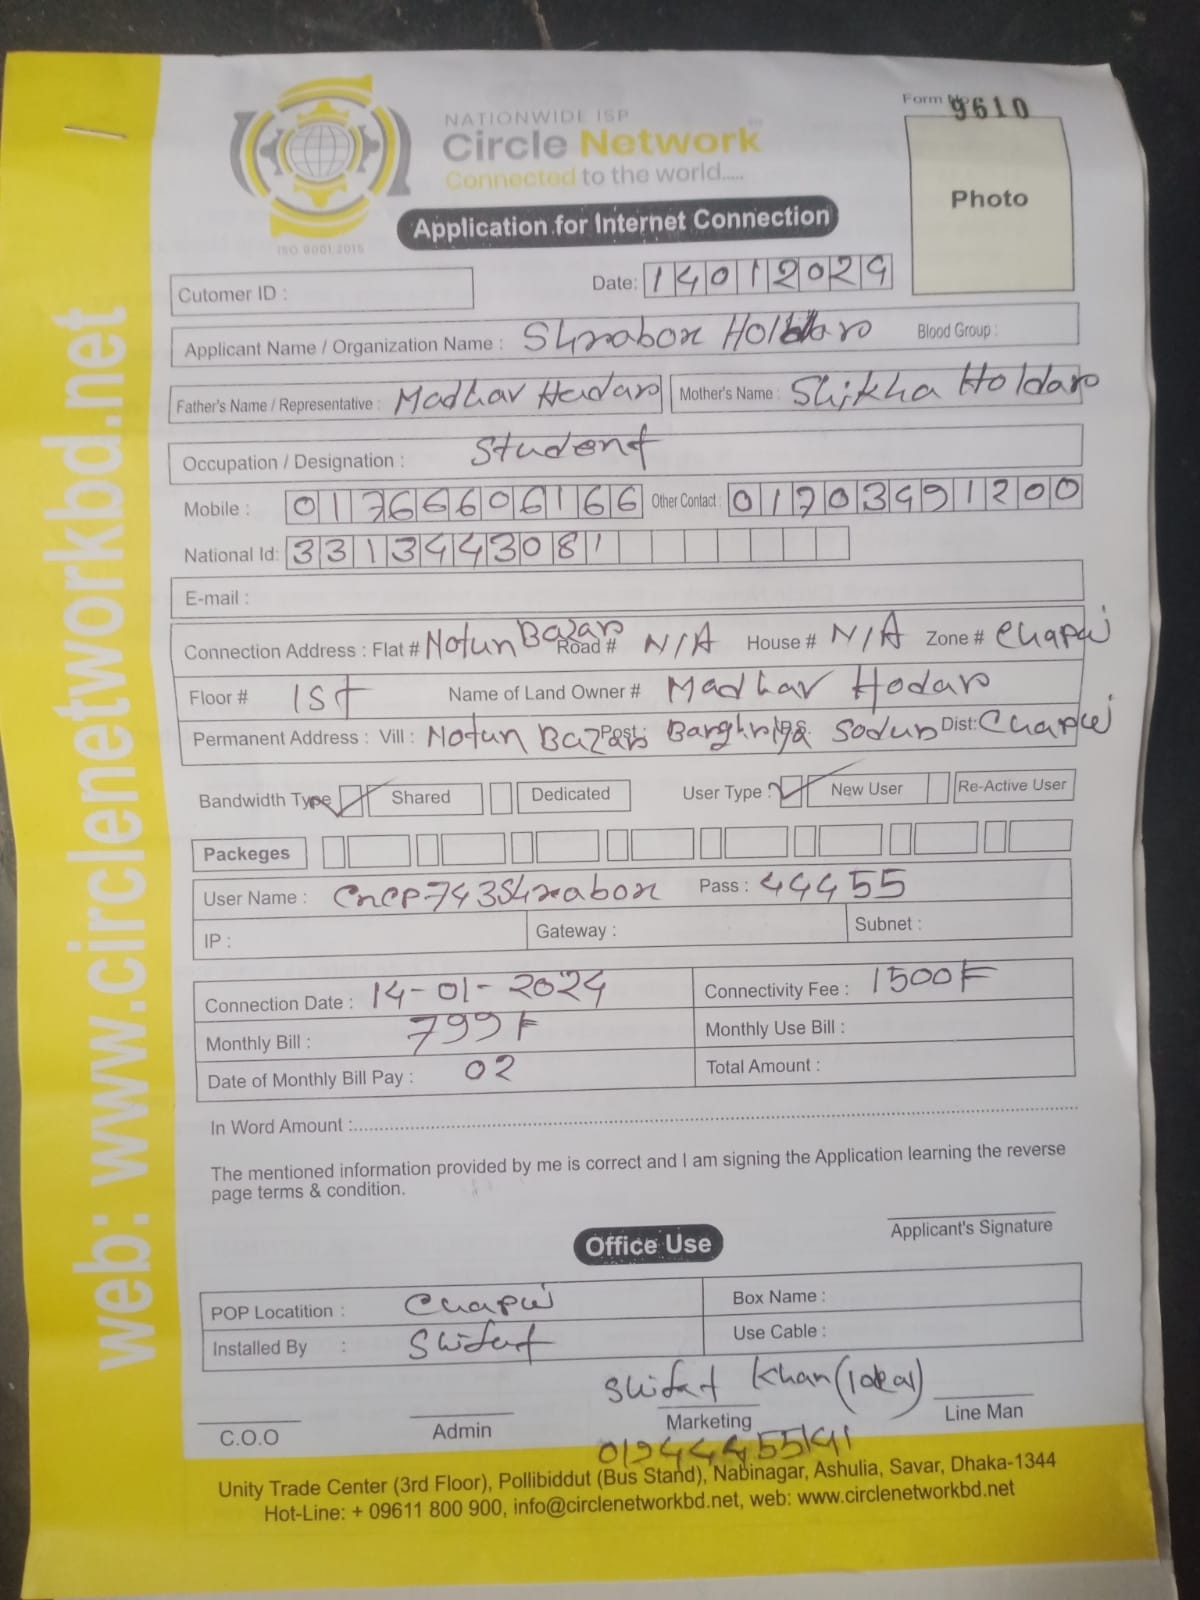 web: www.circlenetworkbd.net
Form No 9610
NATIONWIDE ISP
Circle Network
Connected to the world.....
ISO 9001:2015
Photo
Application for Internet Connection
Cutomer ID :
Date: 14012024
Applicant Name / Organization Name : Shrabon Holdar Blood Group :
Father's Name / Representative : Madhav Mother's Name : Shikha Holdar
Occupation / Designation : Student
Mobile : 01766606166 Other Contact : 01703491200
National Id: 3313443081
E-mail :
Connection Address : Flat # Notun Bazar Road # N/A House # N/A Zone # Chapai
Floor # 1st Name of Land Owner # Madhav Hodar
Permanent Address : Vill : Notun Bazar Post: P.S: Sodur Dist: Chapai
Bandwidth Type Shared Dedicated User Type : New User Re-Active User
Packeges
User Name : cncp743Shrabon Pass : 44455
IP : Gateway : Subnet :
Connection Date : 14-01-2024 Connectivity Fee : 1500
Monthly Bill : 799 Monthly Use Bill :
Date of Monthly Bill Pay : 02 Total Amount :
In Word Amount :
The mentioned information provided by me is correct and I am signing the Application learning the reverse
page terms & condition.
Applicant's Signature
Office Use
POP Locatition : Chapai Box Name :
Installed By : Shifat Use Cable :
Shifat Khan
C.O.O Admin Marketing Line Man
Unity Trade Center (3rd Floor), Pollibiddut (Bus Stand), Nabinagar, Ashulia, Savar, Dhaka-1344
Hot-Line: + 09611 800 900, info@circlenetworkbd.net, web: www.circlenetworkbd.net